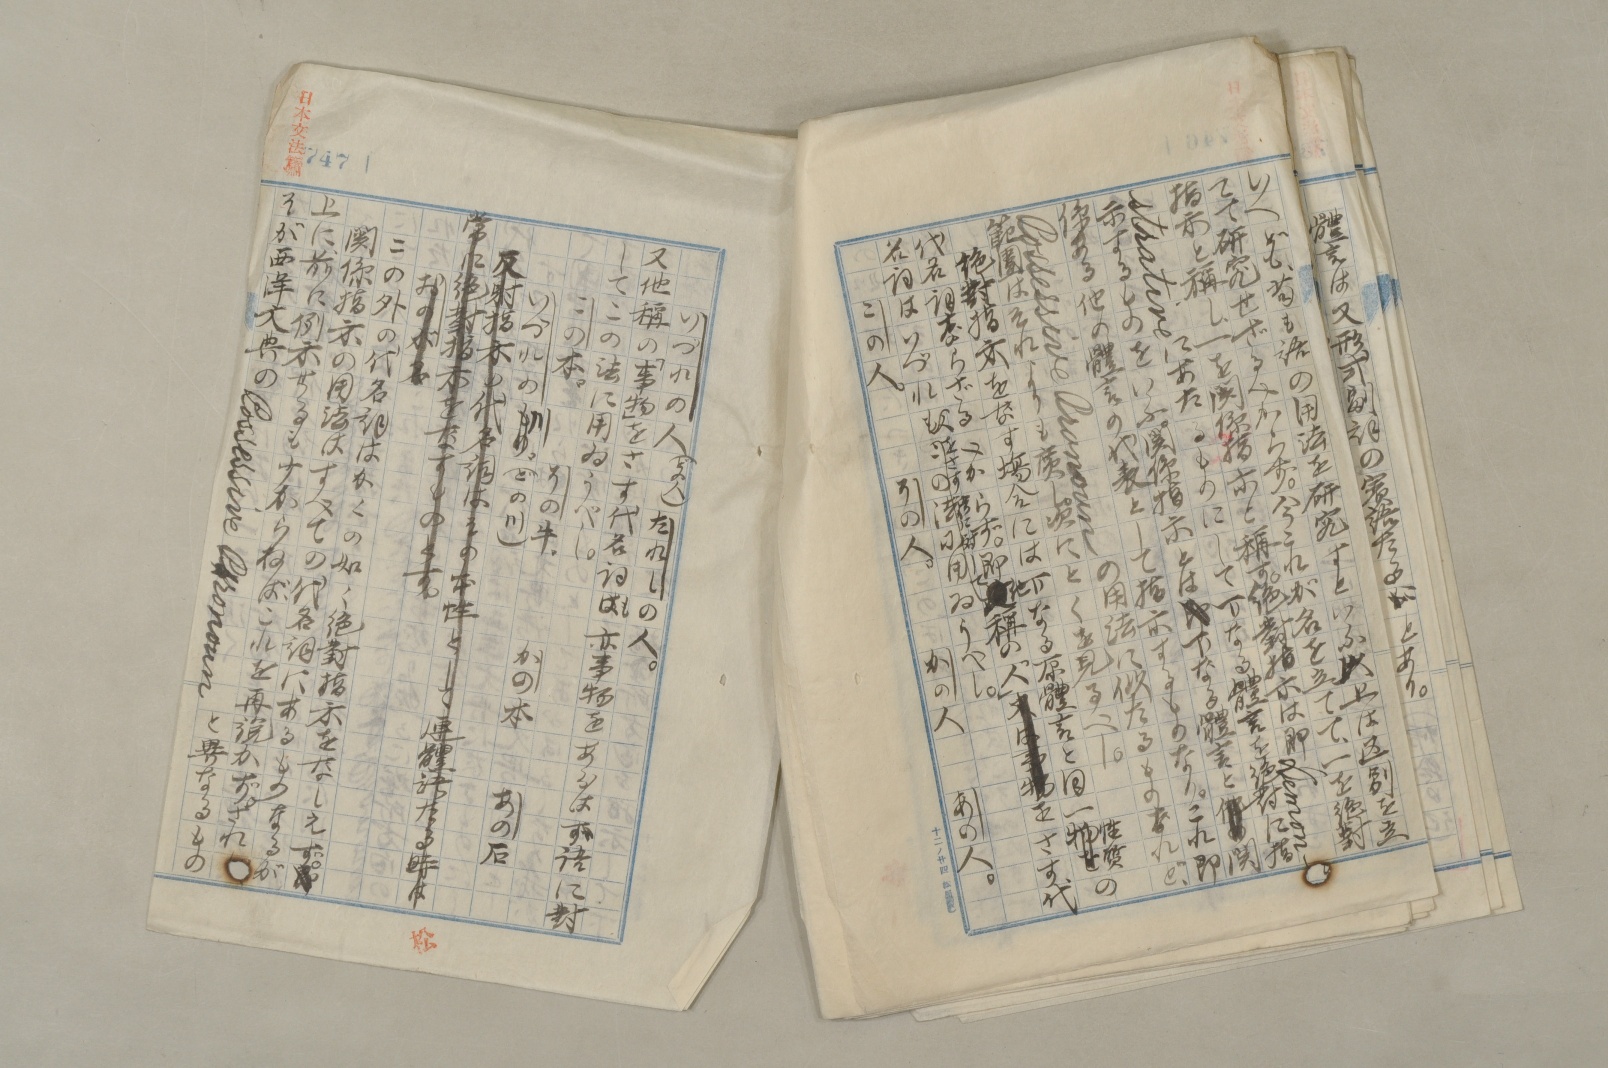 體言は又形式副詞の賓語たるが
とあり。
いへども、苟も語の用法を研究すといふ以上は区別を立
てて研究せざるべからず。今これが名を立てて、一を絶對
指示と稱し、一を関係指示と稱す。絶對指示は即Demon-
strative にあたるものにして一なる體言を絶對に指
示するものをいふ。関係指示とは一なる體言と関
係ある他の體言の代表として指示するものなり。これ即
Possessive Pronoun の用法に似たるものなれど、
範圍はそれよりも廣し。次にとくを見るべし。
絶對指示をなす場合には一なる原體言と同一性質の
代名詞ならざるべからず。即他稱の人をさす代
名詞はいづれもこの法に用ゐうべし。
この人。 その人。 かの人 あの人。
日本文法論
747
いづれの人 たれしの人。
又他稱の事物をさす代名詞も亦事物をあらはす語に對
してこの法に用ゐうべし。
この本。 その牛、 かの本 あの石
いづれの川 (どの川)
反射指示の代名詞はその本性として連體語たる時は
常に絶對指示をなすものとす
おのが
この外の代名詞はかくの如く絶對指示をなしえず。
関係指示の用法はすべての代名詞にあるものなるが
上に前に例示せるも少からねばこれを再説かず。され
そが西洋文典の Possessive Pronoun と異なるもの
松